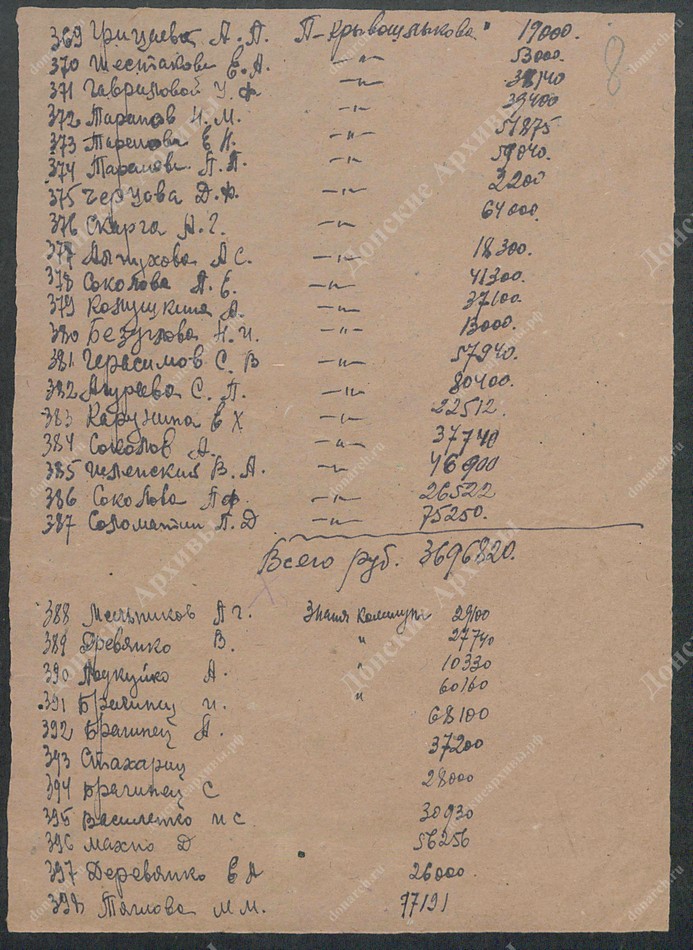 8
369 Грицаева А.П. П-Крывошлыкова" 19000.
370 Шестакова Е.А. —"— 53000.
371 Гавриловой У.Ф. —"— 38140
372 Тарапов И.М. —"— 39400
373 Тарапова Е.Н. —"— 51875
374 Тарапова П.П. —"— 59040.
375 Черцова Д.Ф. —"— 2200
376 Скарга А.Г. —"— 64000.
377 А.С. —"— 18300.
378 Соколова А.Е. —"— 41300.
379 Капушкина А. —"— 37100.
380 Безуглова Н.И. —"— 13000.
381 Герасимов С.В —"— 57940.
382 Агуреева С.П. —"— 80400.
383 Карунина Е Х —"— 22512.
384 Соколов А. —"— 37740
385 В.А. —"— 46900
386 Соколова П.Ф. —"— 26522
387 Соломатин П.Д —"— 75250.
Всего руб. 3696820.
388 Мельников А Г. Знамя Коммуны 29100
389 Древянко В. " 27740
390 А. " 10330
391 Брагинец И. " 60160
392 Брагинец А. 68100
393 Стахариц 37200
394 Брагинец С 28000
395 Василенко И С 30930
396 Махно Д 56256
397 Деревянко Е А 26000.
398 Тяглова М.М. 77191
Донские Архивы
donarch.ru
донскиеархивы.рф